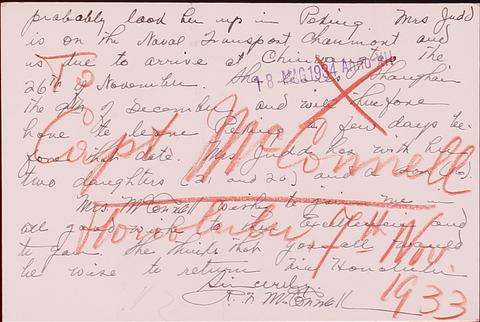 probably look her up in Peking. Mrs Judd
is on the Naval Transport Chaumont and
is due to arrive at Chinwangtao the
26th of November. She leaves Shanghai
the of December and will therefore
have to leave Peking a few days be-
fore that date. Mrs Judd has with her
two daughters (21 and 20) and a son
Mrs. McConnell wishes to join me in
all good wishes to his Excellency and
to you. She thinks that you all would
be wise to return via Honolulu.
Sincerely,
R. F. McConnell
18 AUG 1934
To
Capt McConnell
Honolulu 7th Nov.
1933